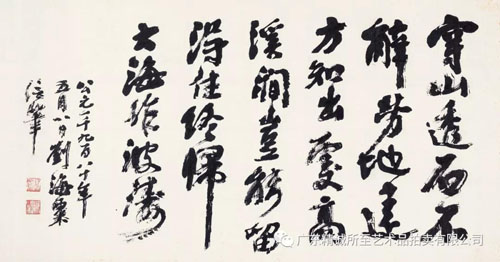 穿山透石不
辭勞地遠
方知出處高
溪澗豈能留
得住終歸
大海作波濤
公元一千九百八十年
五月八日劉海粟
广东精诚所至艺术品拍卖有限公司